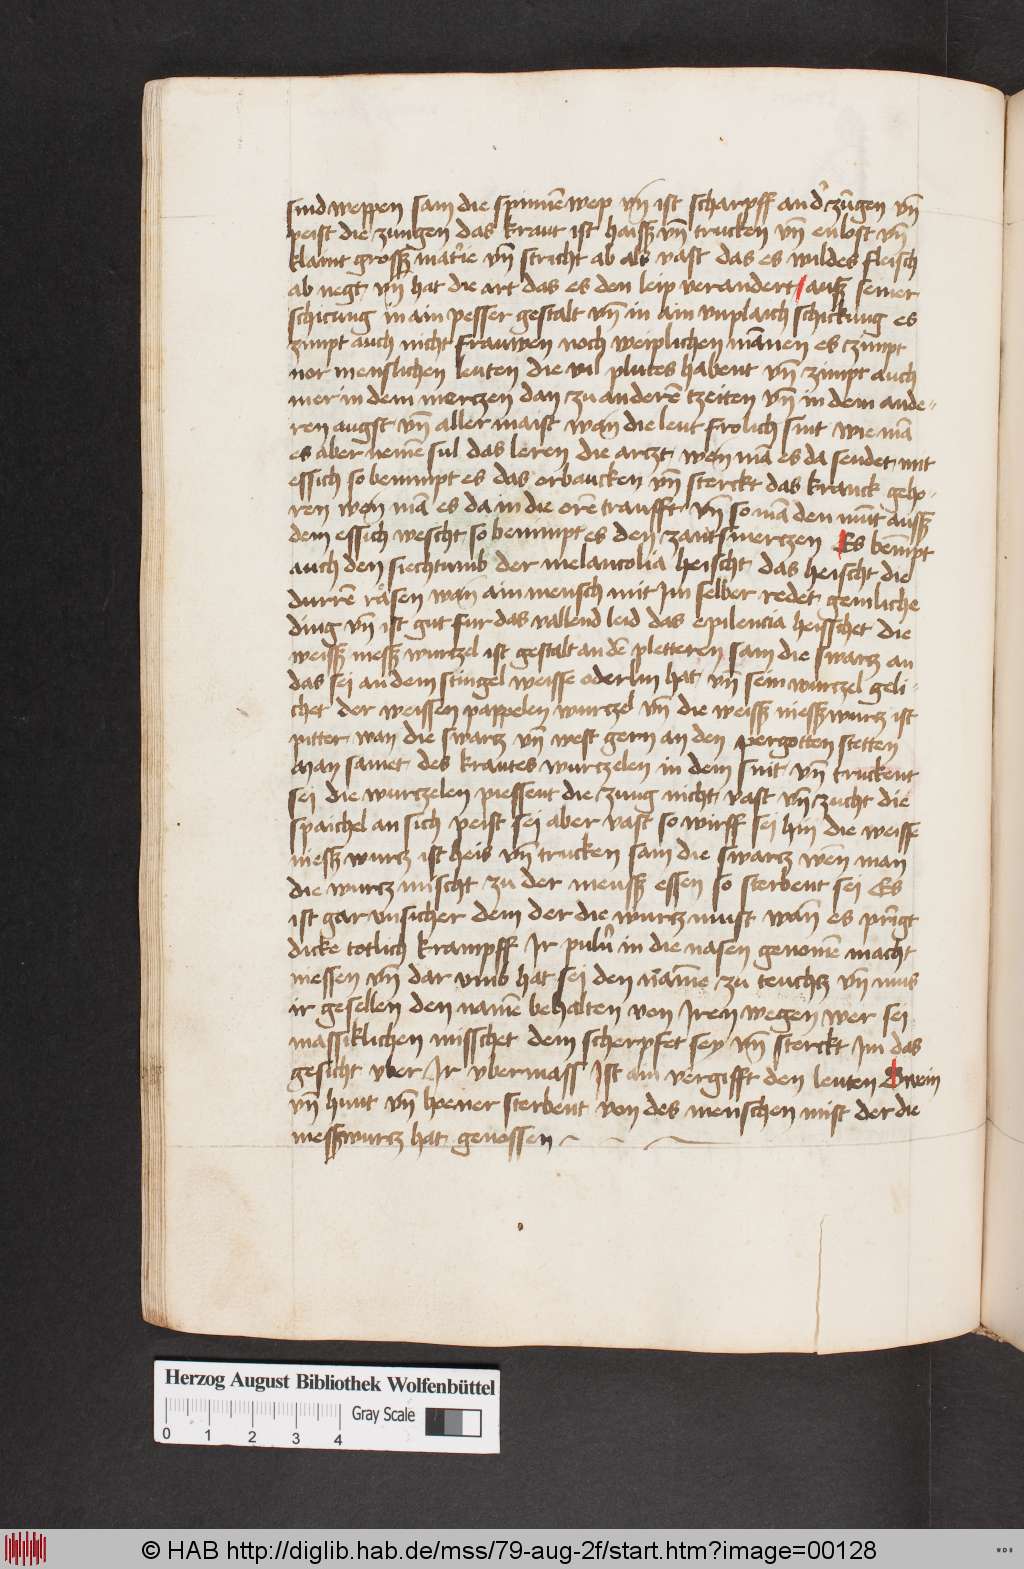 sind weppen sam die spinnē wep vn̄ ist scharpff an dʼ zūgen vn̄
peist die zungen das kraut ist haissʒ vn̄ trucken vn̄ enlost vn̄
klaint grossʒ matʼie vn̄ stricht ab als vast das es wildes fleisch
ab negt vn̄ hat die art das es den leip verandert / aussʒ seiner
schicung in ain pesser gestalt vn̄ in ain vnplaich schickung es
zimpt auch nicht frauwen noch weiplichen mānen es czimpt
nor menslichen leuten die vil plutes habent vn̄ zimpt auch
mer in dem mertzen dan zu anderē tzeiten vn̄ in dem ande-
ren augst vn̄ aller maist wan̄ die leut frolich sint wie mā
es aber nemē sul das leren die artzt wen̄ mā es da seudet mit
essich so benimpt es das orbaucken vn̄ sterckt das kranck geho-
ren wen̄ mā es da in die orē traufft vn̄ so mā den mūt aussʒ
dem essich wescht so benimpt es den zantsmertzen Es benīpt
auch den siechtumb der melancolia heischt das heischt die
durrē rasen wan̄ ain mensch mit Im selber redet gemliche
ding vn̄ ist gut fur das vallend leid das epilencia heisschet die
weissʒ niessʒ wurtzel ist gestalt an dē pletteren sam die swartz an
das sei an dem stingel weisse oderlin hat vn̄ sein wurtzel geli-
chet der weissen pappelen wurtzel vn̄ die weissʒ niessʒwurtz ist
pitter wan die swartz vn̄ west gern an den pergotten stetten
Man samet des krautes wurtzelen in dem snit vn̄ truckent
sei die wurtzelen piessent die zung nicht vast vn̄ zucht die
spaichel an sich peist sei aber vast so wirff sei hin die weisse
niessʒ wurtz ist heis vn̄ trucken sam die swartz wen̄ man
die wurtz mischt zu der meussʒ essen so sterbent sei Es
ist gar vnsicher dem der die wurtz nuist wan̄ es prīgt
dicke totlich krampff Ir puluʼ in die nasen genomē macht
niessen vn̄ dar vmb hat sei den namē zu teuchtz vn̄ mus
ir gesellen den namē behalten von Iren wegen wer sei
massiklichen misschet dem scherpfet sey vn̄ sterckt Im das
gesicht vber Ir vbermass Ist ain vergifft den leuten Swein
vn̄ hunt vn̄ hoener sterbent von des menschen mist der die
niessʒwurtz hat genossen
Herzog August Bibliothek Wolfenbüttel
0 1 2 3 4
Gray Scale
© HAB http://diglib.hab.de/mss/79-aug-2f/start.htm?image=00128